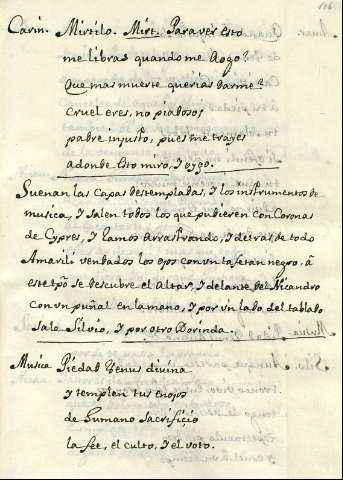 116
Carin. Mirtilo. Mirt. Para ver esto
me libras quando me Aogo?
Que mas muerte querias darme?
Cruel eres, no piadoso,
padre injusto, pues me trayes
adonde esto miro, y oygo.
Suenan las Caxas destempladas, y los instrumentos de
musica, y salen todos los que pudieren con Coronas
de Cypres, y Ramos Arrastrando, y detras de todo
Amarili vendados los ojos con vn tafetan negro, â
este tpõ se descubre el Altar, y delante del Nicandro
con vn puñal en la mano, y por vn lado del tablado
Sale Silvio, y por otro Dorinda.
Musica Piedad Venus divina
y templen tus enojos
de humano sacrificio
la feè, el culto, y el voto.